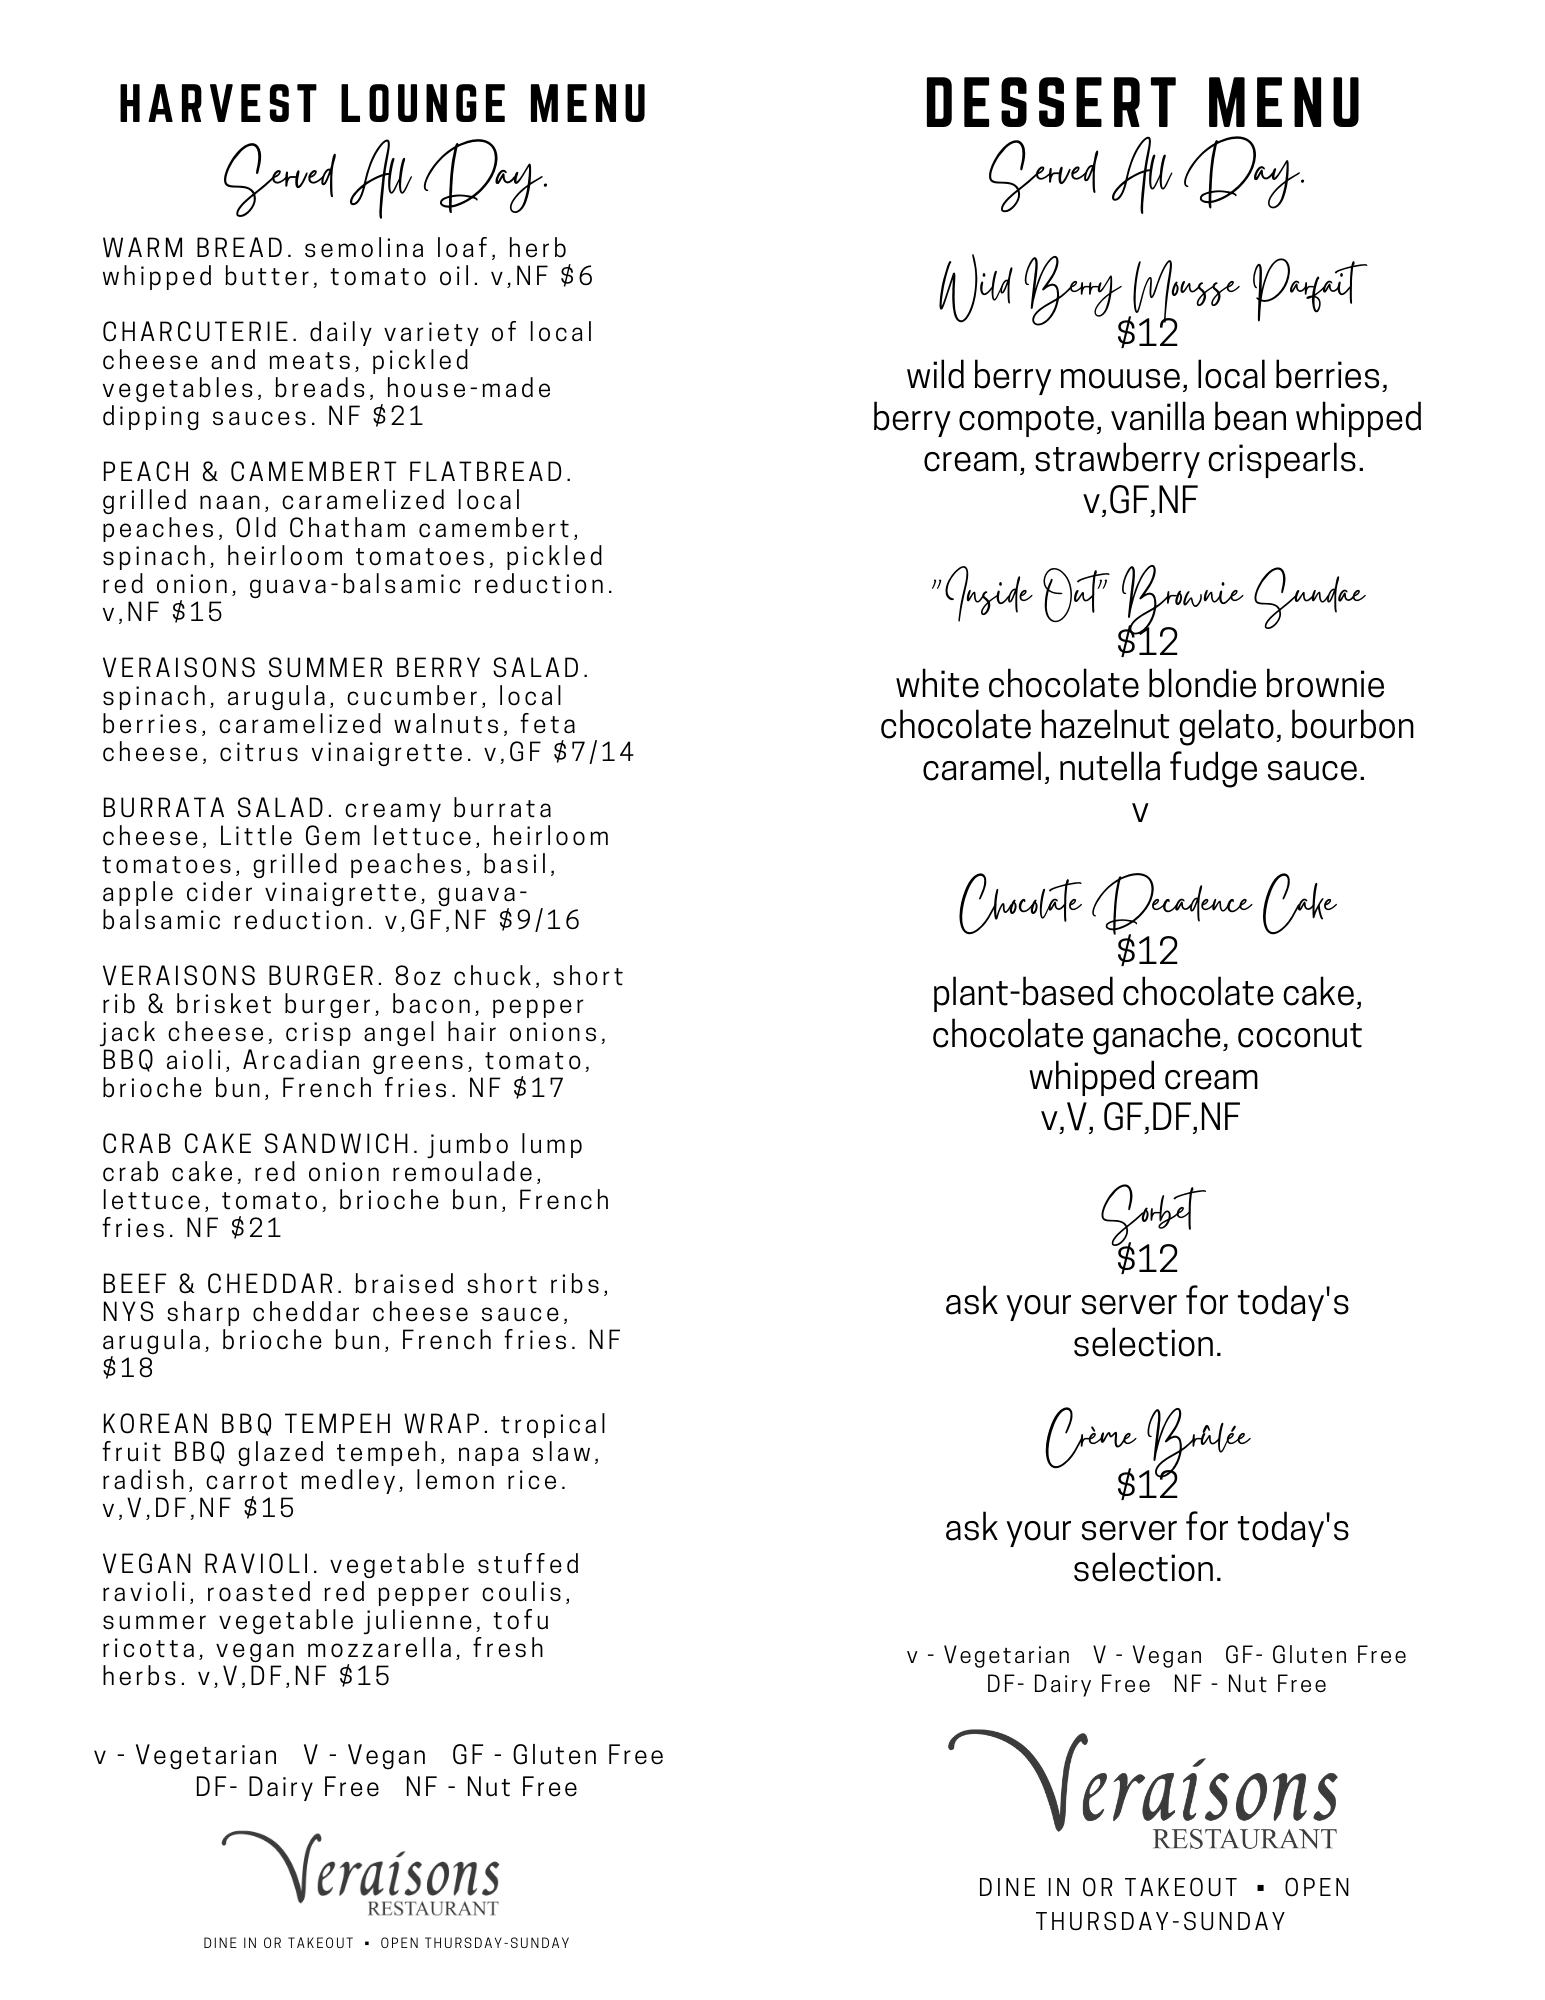 HARVEST LOUNGE MENU
Served All Day.
WARM BREAD. semolina loaf, herb
whipped butter, tomato oil. v,NF $6
CHARCUTERIE. daily variety of local
cheese and meats, pickled
vegetables, breads, house-made
dipping sauces. NF $21
PEACH & CAMEMBERT FLATBREAD.
grilled naan, caramelized local
peaches, Old Chatham camembert,
spinach, heirloom tomatoes, pickled
red onion, guava-balsamic reduction.
v,NF $15
VERAISONS SUMMER BERRY SALAD.
spinach, arugula, cucumber, local
berries, caramelized walnuts, feta
cheese, citrus vinaigrette. v,GF $7/14
BURRATA SALAD. creamy burrata
cheese, Little Gem lettuce, heirloom
tomatoes, grilled peaches, basil,
apple cider vinaigrette, guava-
balsamic reduction. v,GF,NF $9/16
VERAISONS BURGER. 8oz chuck, short
rib & brisket burger, bacon, pepper
jack cheese, crisp angel hair onions,
BBQ aioli, Arcadian greens, tomato,
brioche bun, French fries. NF $17
CRAB CAKE SANDWICH. jumbo lump
crab cake, red onion remoulade,
lettuce, tomato, brioche bun, French
fries. NF $21
BEEF & CHEDDAR. braised short ribs,
NYS sharp cheddar cheese sauce,
arugula, brioche bun, French fries. NF
$18
KOREAN BBQ TEMPEH WRAP. tropical
fruit BBQ glazed tempeh, napa slaw,
radish, carrot medley, lemon rice.
v,V,DF,NF $15
VEGAN RAVIOLI. vegetable stuffed
ravioli, roasted red pepper coulis,
summer vegetable julienne, tofu
ricotta, vegan mozzarella, fresh
herbs. v,V,DF,NF $15
v - Vegetarian V - Vegan GF - Gluten Free
DF- Dairy Free NF - Nut Free
Veraisons
RESTAURANT
DINE IN OR TAKEOUT ▪ OPEN THURSDAY-SUNDAY
DESSERT MENU
Served All Day.
Wild Berry Mousse Parfait
$12
wild berry mouuse, local berries,
berry compote, vanilla bean whipped
cream, strawberry crispearls.
v,GF,NF
"Inside Out" Brownie Sundae
$12
white chocolate blondie brownie
chocolate hazelnut gelato, bourbon
caramel, nutella fudge sauce.
v
Chocolate Decadence Cake
$12
plant-based chocolate cake,
chocolate ganache, coconut
whipped cream
v,V, GF,DF,NF
Sorbet
$12
ask your server for today's
selection.
Crème Brûlée
$12
ask your server for today's
selection.
v - Vegetarian V - Vegan GF- Gluten Free
DF- Dairy Free NF - Nut Free
Veraisons
RESTAURANT
DINE IN OR TAKEOUT ▪ OPEN
THURSDAY-SUNDAY